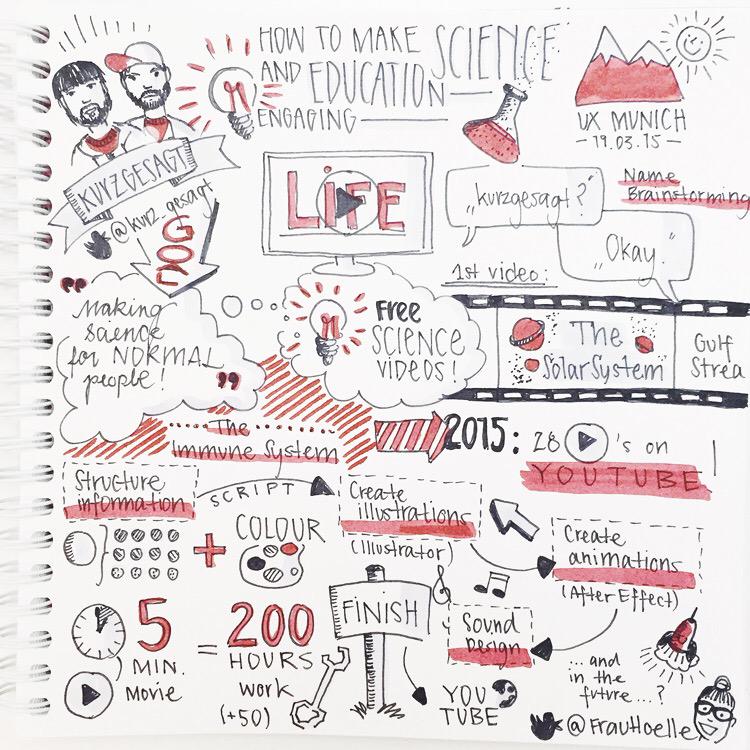 HOW TO MAKE SCIENCE
AND EDUCATION
ENGAGING
UX MUNICH
- 19.03.15 -
KURZGESAGT
@kurz_gesagt
GOAL
LiFE
"kurzgesagt?"
Name
Brainstorming
"Okay."
1st video:
"Making
Science
for NORMAL
people!"
Free
SCIENCE
VIDEOS!
The
Solar System
Gulf
Strea
The
Immune System
2015: 28 's on
YOUTUBE
Structure
information
SCRIPT
Create
illustrations
(Illustrator)
Create
animations
(After Effect)
+ COLOUR
5
MIN.
Movie
= 200
HOURS
work
(+50)
FiNiSH
Sound
Design
YOU
TUBE
...and
in the
future...?
@FrauHoelle